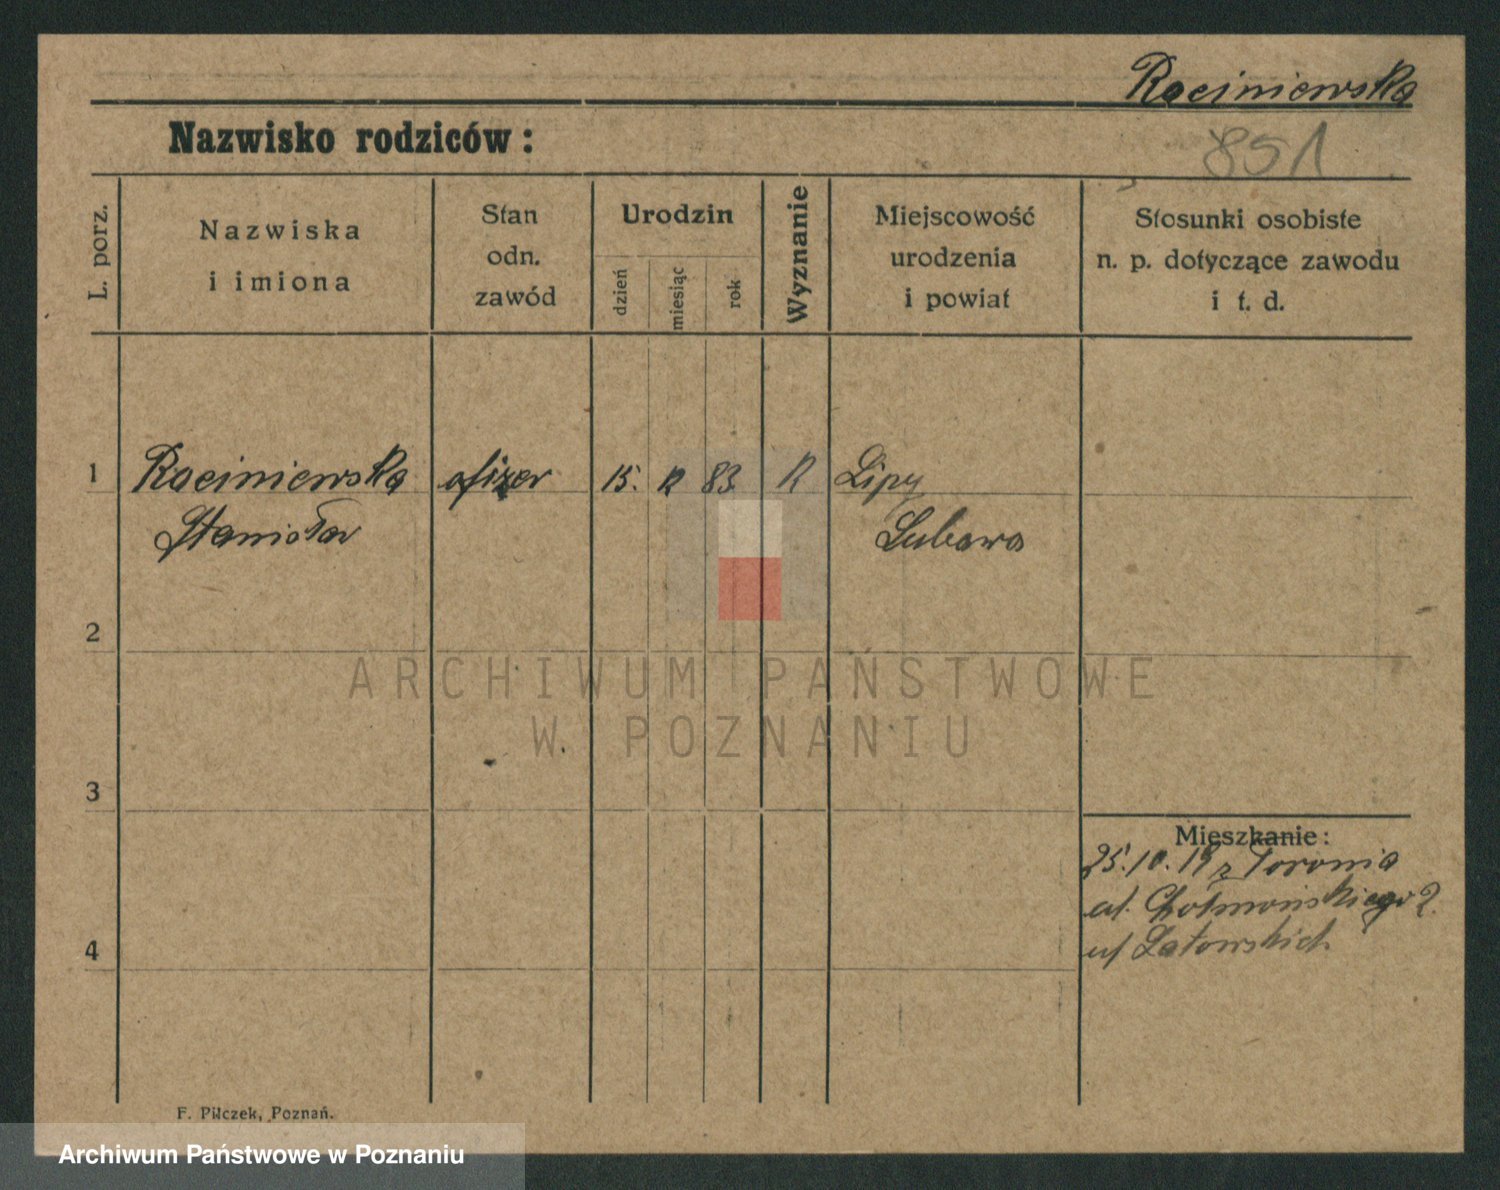 Raciniewska
851
Nazwisko rodziców:
L. porz.
Nazwiska
i imiona
Stan
odn.
zawód
Urodzin
dzień
miesiąc
rok
Wyznanie
Miejscowość
urodzenia
i powiat
Stosunki osobiste
n. p. dotyczące zawodu
i t. d.
1
Raciniewska
ofizer
15.
83
R
Lipy
Stanisław
Lubawa
2
ARCHIWUM PAŃSTWOWE
W POZNANIU
3
Mieszkanie:
25.10.19 z Torunia
ul. 2.
4
F. Pilczek, Poznań.
Archiwum Państwowe w Poznaniu